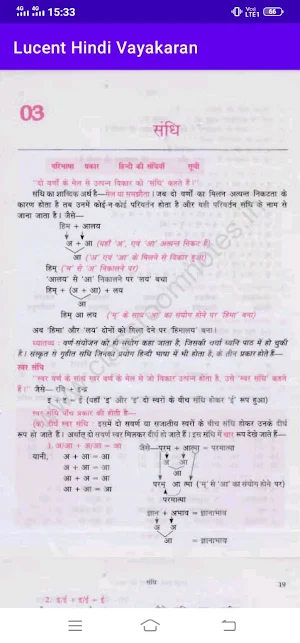 15:33
Lucent Hindi Vayakaran
03
संधि
परिभाषा प्रकार हिन्दी की संधियाँ सूची
"दो वर्णों के मेल से उत्पन्न विकार को 'संधि' कहते हैं।"
संधि का शाब्दिक अर्थ है—मेल या समझौता। जब दो वर्णों का मिलन अत्यन्त निकटता के
कारण होता है तब उनमें कोई-न-कोई परिवर्तन होता है और यही परिवर्तन संधि के नाम से
जाना जाता है। जैसे—
हिम + आलय
अ + आ (यहाँ 'अ', एवं 'आ' अत्यन्त निकट हैं)
आ ('अ' एवं 'आ' के मिलने से विकार हुआ)
हिम् ('म' से 'अ' निकालने पर)
'आलय' से 'आ' निकालने पर 'लय' बचा
हिम् + (अ + आ) + लय
आ
हिम् आ लय ('म्' के साथ 'आ' का संयोग होने पर 'हिमा' बना)
अब 'हिमा' और 'लय' दोनों को मिला देने पर 'हिमालय' बना।
ध्यातव्य : वर्ण संयोजन को ही संयोग कहा जाता है, जिसकी चर्चा ध्वनि पाठ में हो चुकी
है। संस्कृत से गृहीत संधि जिनका प्रयोग हिन्दी भाषा में भी होता है, के तीन प्रकार होते हैं—
स्वर संधि
"स्वर वर्ण के साथ स्वर वर्ण के मेल से जो विकार उत्पन्न होता है, उसे 'स्वर संधि' कहते
हैं।" जैसे— रवि + इन्द्र
इ + इ = ई (यहाँ 'इ' और 'इ' दो स्वरों के बीच संधि होकर 'ई' रूप हुआ)
स्वर संधि पाँच प्रकार की होती है—
(क) दीर्घ स्वर संधि : इसमें दो सवर्ण या सजातीय स्वरों के बीच संधि होकर उनके दीर्घ
रूप हो जाते हैं। अर्थात् दो सवर्ण स्वर मिलकर दीर्घ हो जाते हैं। इस संधि में चार रूप देखे जाते हैं—
1. अ/आ + अ/आ = आ जैसे—परम + आत्मा = परमात्मा
यानी, अ + आ = आ अ आ
अ + आ = आ आ
आ + अ = आ परम् आ त्मा ('म्' से 'आ' का संयोग होने पर)
आ + आ = आ परमात्मा
ज्ञान + अभाव = ज्ञानाभाव
अ अ
आ = ज्ञानाभाव
संधि 19
2. इ/ई + इ/ई = ई